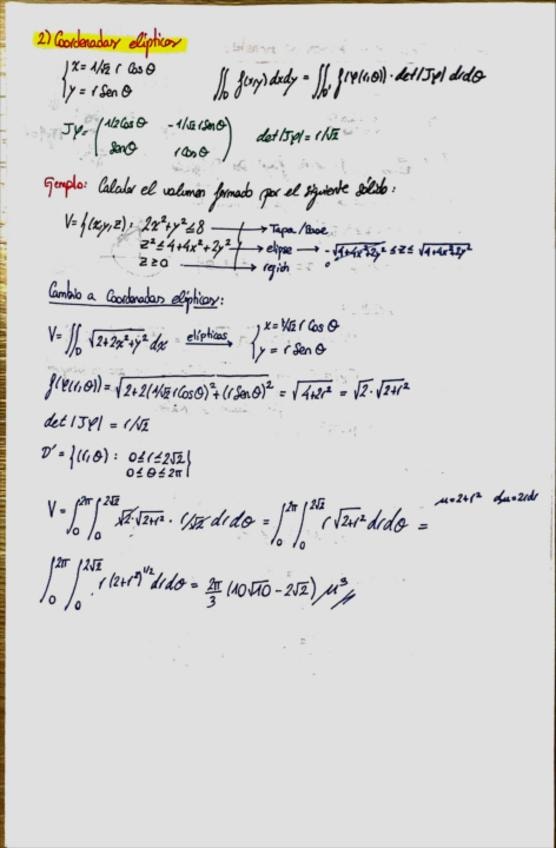 2) Coordenadas elípticas
{ x = 1/√2 r Cos θ
y = r Sen θ
∬_D f(x,y) dxdy = ∬_D' f(φ(r,θ)) · det|Jφ| drdθ
Jφ = ( 1/2 Cos θ   -1/√2 r Sen θ
Sen θ   r Cos θ )   det|Jφ| = r/√2
Ejemplo: Calcular el volumen formado por el siguiente sólido:
V = {(x,y,z): 2x²+y² ≤ 8 → Tapa/Base
z² ≤ 4+4x²+2y² → elipse → -√4+4x²+2y² ≤ z ≤ √4+4x²+2y²
z ≥ 0 → región   0
Cambio a Coordenadas elípticas:
V = ∬_D √2+2x²+y² dx   elípticas →   { x = 1/√2 r Cos θ
y = r Sen θ
f(φ(r,θ)) = √2+2(1/√2 r Cos θ)²+(r Sen θ)² = √4+2r² = √2 · √2+r²
det |Jφ| = r/√2
D' = {(r,θ): 0 ≤ r ≤ 2√2}
0 ≤ θ ≤ 2π
μ = 2+r²   dμ = 2rdr
V = ∫₀^2π ∫₀^2√2 √2 · √2+r² · r/√2 drdθ = ∫₀^2π ∫₀^2√2 r √2+r² drdθ =
∫₀^2π ∫₀^2√2 r (2+r²)^1/2 drdθ = 2π/3 (10√10 - 2√2) μ³